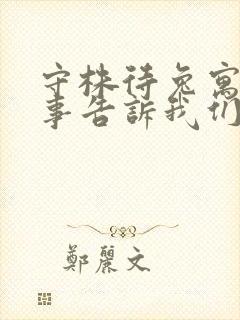 守株待兔寓
事告訴我们
鄭麗文